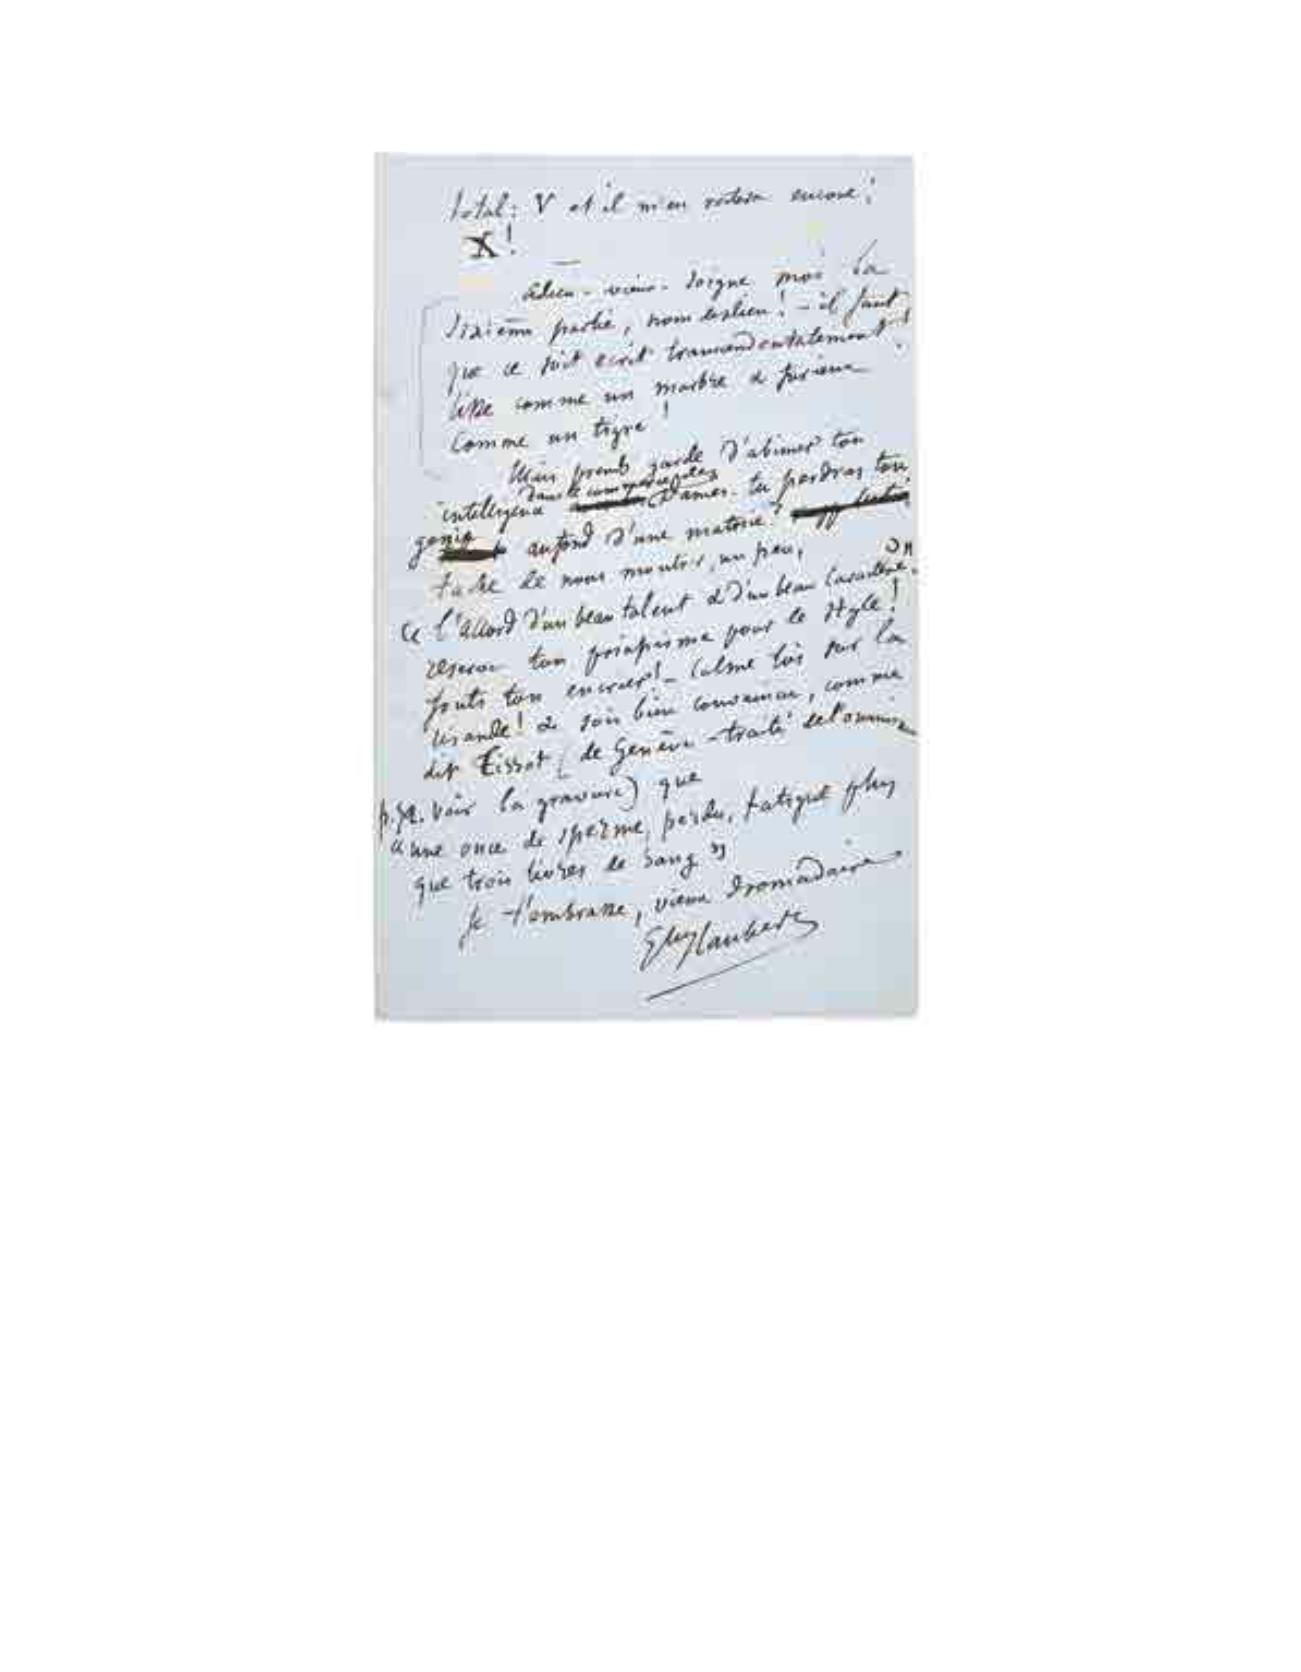 total: V et il m'en restera encore!
X!
Adieu - vieux. soigne moi la
sixième partie, nom de dieu! - il faut
que ce soit écrit transcendentalement!
lisse comme un marbre & furieux
comme un tigre!
Mais prends garde d'abimer ton
intelligence dans le commerce des dames. tu perdras ton
génie au fond d'une matrice?
tache de nous montrer, un peu,
« l'accord d'un beau talent & d'un beau caractère. »
réserve ton priapisme pour le style!
fouts ton encrier! - calme toi sur la
viande! & sois bien convaincu, comme
dit Tissot (de Genève - traité de l'onanisme
p. 72. voir la gravure) que
« une once de sperme, perdu, fatigue plus
que trois livres de sang »
Je t'embrasse, vieux dromadaire
GveFlaubert